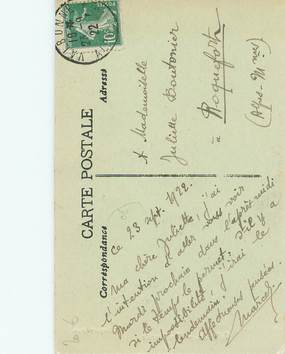 CARTE POSTALE
Correspondance
Adresse
VALBONNE
10
22
A Mademoiselle
Juliette Boutonier
à
Roquefort
(Alpes-M mes)
Ce 23 sept. 1922.
Ma chère Juliette, j'ai
l'intention d'aller vous voir
Mardi prochain dans l'après-midi
si le temps le permet. S'il y a
impossibilité, j'irai le
lendemain.
Affectueuses pensées.
Marcel